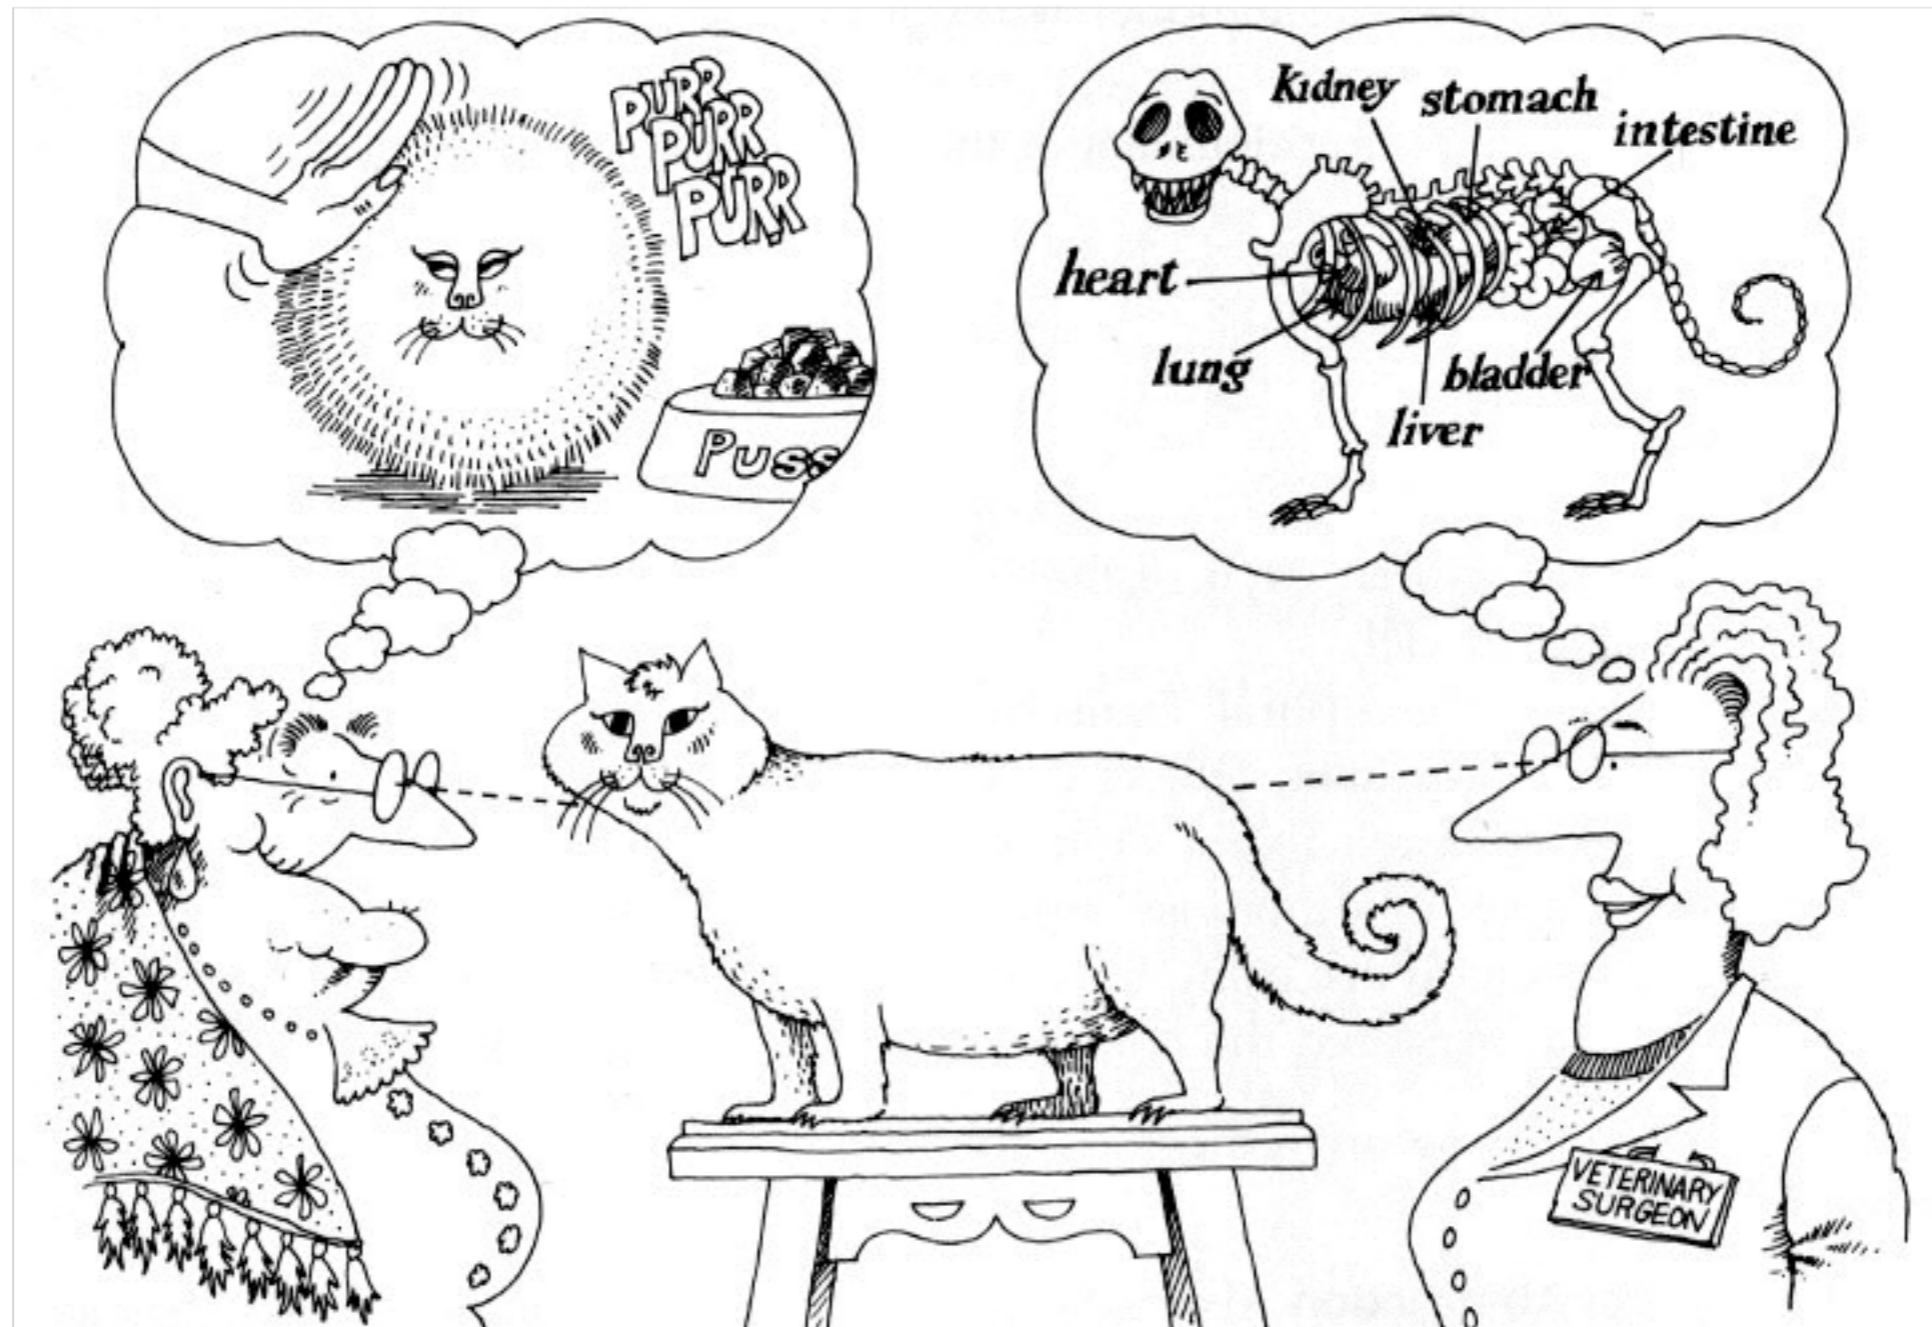 PURR
PURR
PURR
Puss
Kidney
stomach
intestine
heart
lung
bladder
liver
VETERINARY
SURGEON